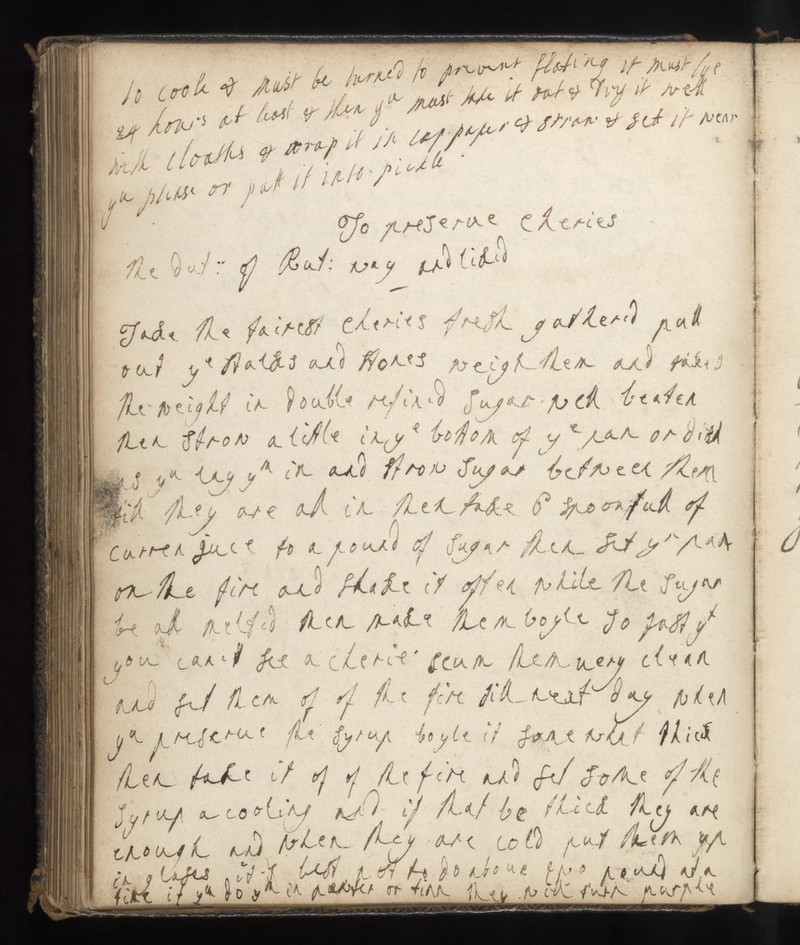 to coole & must be turned to prevent floting it must lye
24 hours at least & then yu must take it out & Dry it well
with cloaths & wrap it in cap paper & straw & set it wear
yu please or putt it into pickle
To preserve Cheries
the Dut:: of Rut: way and liked
Take the fairest cheries fresh gathered pull
out ye stalks and stones weigh them and take
the weight in double refined Sugar well beaten
then strow a little in ye bottom of ye pan or dish
as yu lay ym in and strow Sugar between them
till they are all in then take 6 spoonfull of
curren juce to a pound of Sugar then set yr pan
on the fire and shake it often while the Sugar
be all melted then make them boyle so fast yt
you can't see a cherie scum them uery clean
and set them of of the fire till next day when
yu preserue the syrup boyle it somewhat thick
then take it of of the fire and set some of the
Syrup a cooling and if that be thick they are
enough and when they are cold put them up
in glases it's best not to do aboue two pound at a
time if yu do ym in pewter or tinn they will turn purple